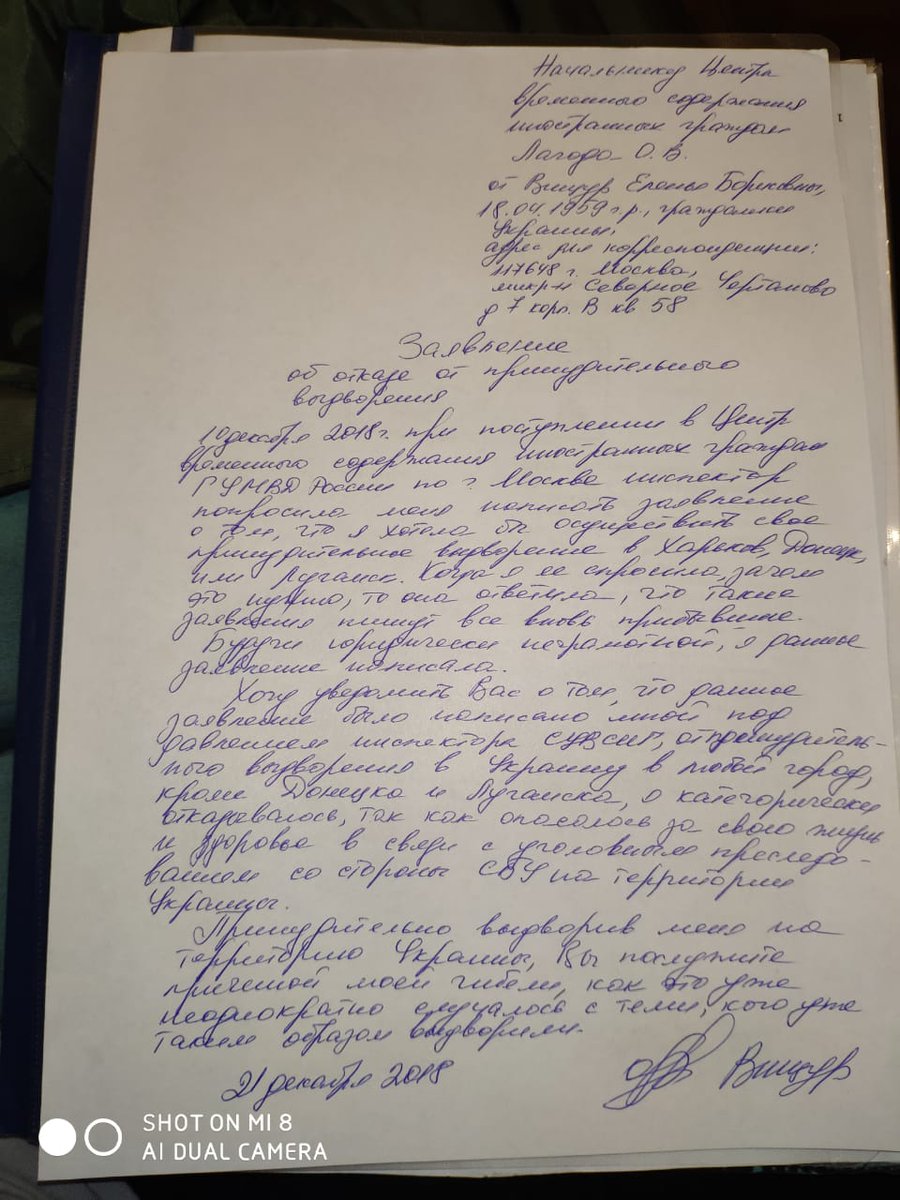 Начальнику Центра
временного содержания
иностранных граждан
Лагода О. В.
от Вищур Елены Борисовны,
18.04.1959 г.р., гражданки
Украины,
адрес для корреспонденции:
117648 г. Москва,
микр-н Северное Чертаново
д 7 корп. В кв 58
Заявление
об отказе от принудительного
выдворения
10 декабря 2018г. при поступлении в Центр
временного содержания иностранных граждан
ГУМВД России по г. Москве инспектор
попросила меня написать заявление
о том, что я хотела бы осуществить свое
принудительное выдворение в Харьков, Донецк,
или Луганск. Когда я ее спросила, зачем
это нужно, то она ответила, что такие
заявления пишут все вновь прибывшие.
Будучи юридически неграмотной, я данное
заявление написала.
Хочу уведомить Вас о том, что данное
заявление было написано мной под
давлением инспектора СУВСИГ, от принудитель-
ного выдворения в Украину в любой город,
кроме Донецка и Луганска, я категорически
отказывалась, так как опасалась за свою жизнь
и здоровье в связи с уголовным преследо-
ванием со стороны СБУ на территории
Украины.
Принудительно выдворив меня на
территорию Украины, Вы послужите
причиной моей гибели, как это уже
неоднократно случалось с теми, кого уже
таким образом выдворили.
21 декабря 2018
Вищур
SHOT ON MI 8
AI DUAL CAMERA